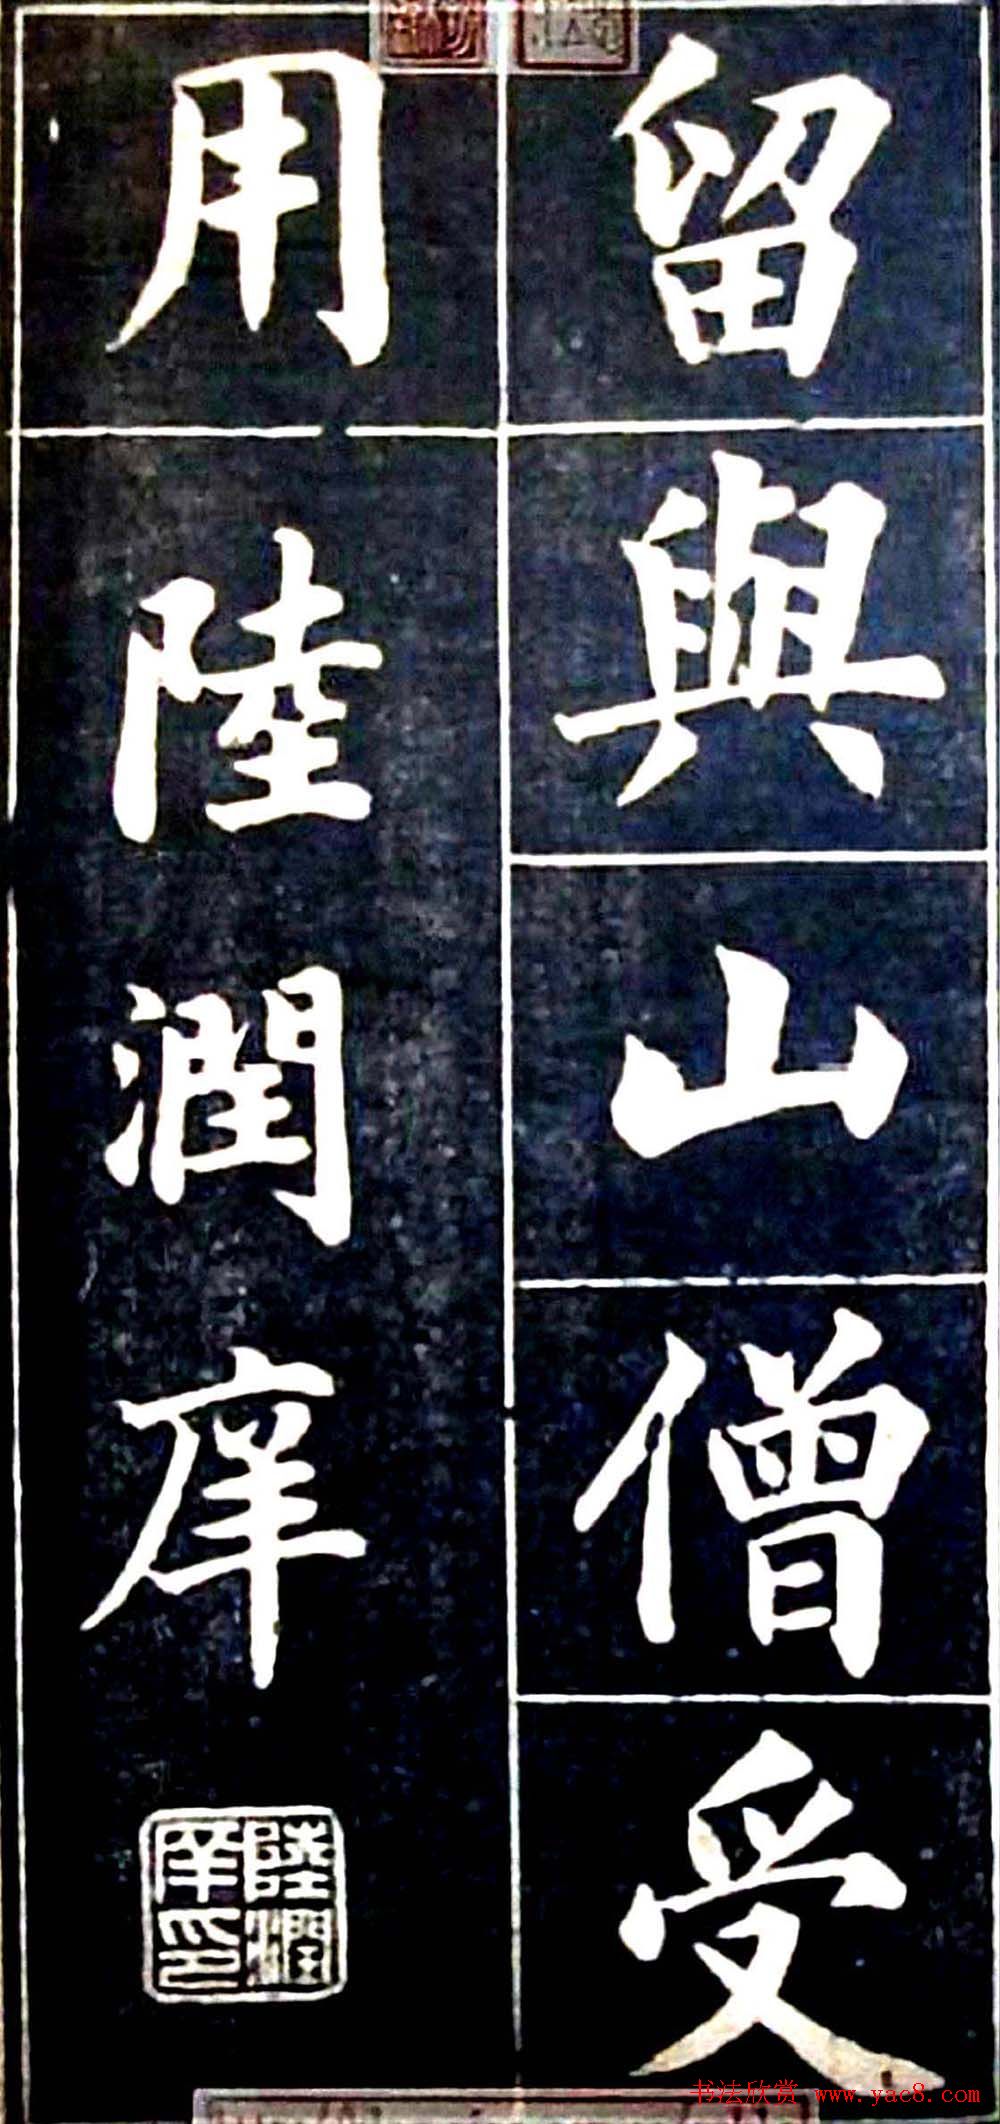 留與山僧受
用
陸潤庠
陸潤庠印
书法欣赏 www.yac8.com